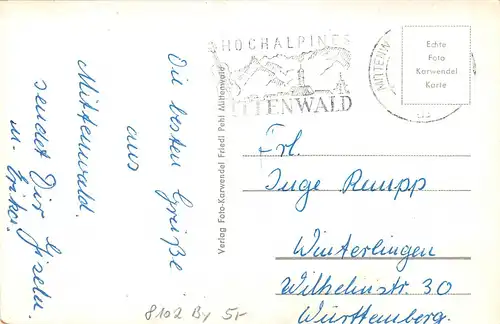 Die besten Grüße
aus
Mittenwald.
sendet Dir Giseln
u. Erika.
Verlag Foto-Karwendel Friedl Pehl Mittenwald
HOCHALPINES
MITTENWALD
MITTENW
Echte
Foto
Karwendel
Karte
Frl.
Inge Rumpp
Winterlingen
Wilhelmstr. 30
Württemberg.
8102 By 5,-